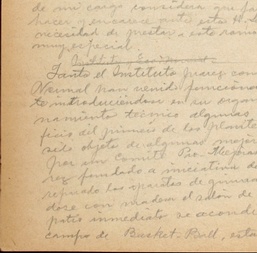 de mi cargo considera que
hacer y encarece ante esta H.
necesidad de prestar a este ramo
muy especial.
Tanto el Instituto Juarez como
Normal han venido funcionando
te introduciendose en su
namiento técnico algunas
ficio del primero de los planteles
sido objeto de algunas mejoras
por un Comité Pro-
rez fundado a iniciativa de
reparado los aparatos de gimnasia
dose con madera el salón de
patio inmediato se acondi
campo de Basket-Ball, esta